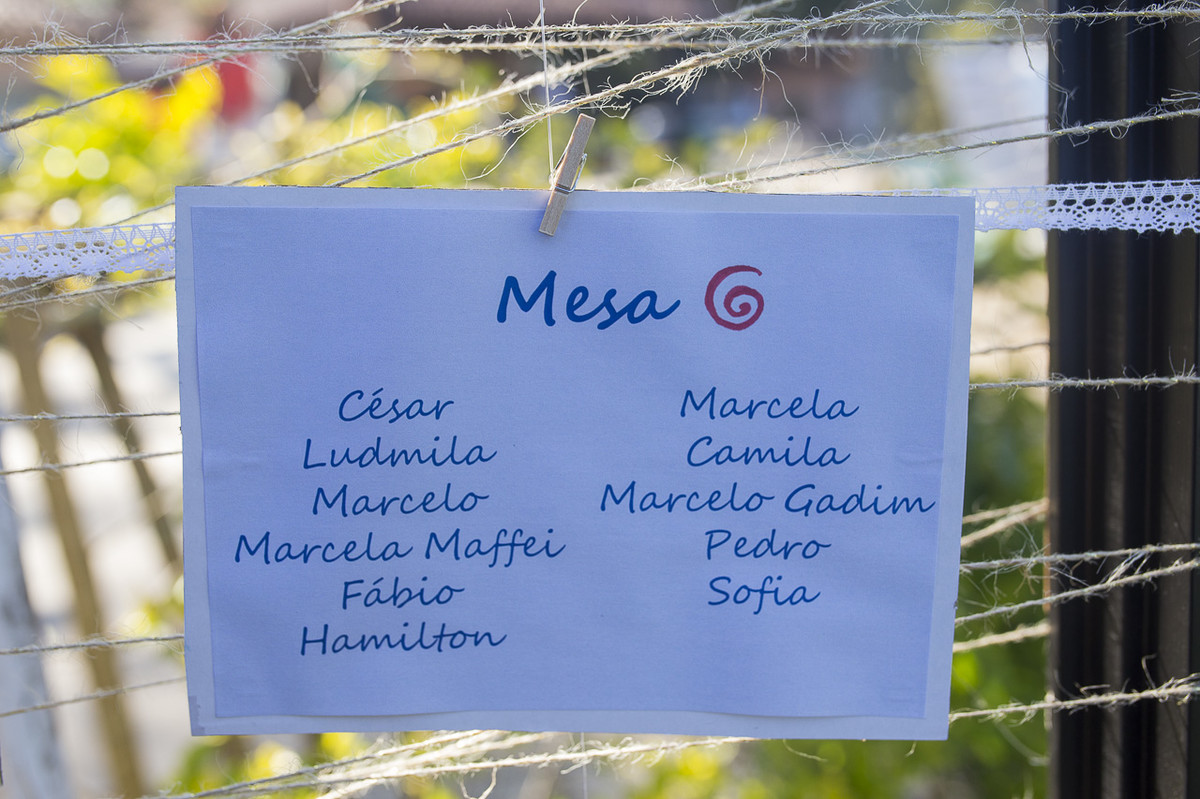 Mesa 6
César
Ludmila
Marcelo
Marcela Maffei
Fábio
Hamilton
Marcela
Camila
Marcelo Gadim
Pedro
Sofia